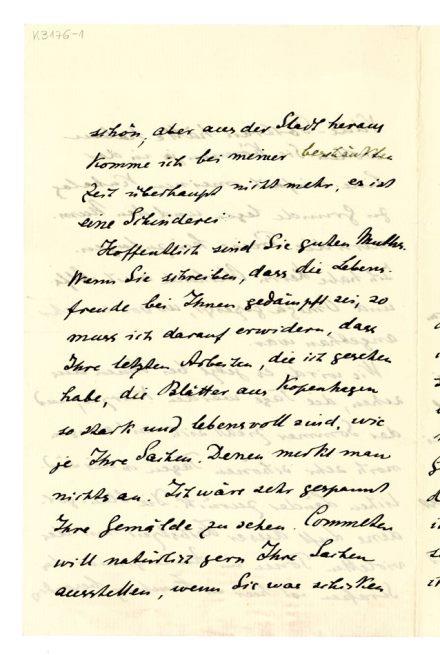 K3176-1
schön, aber aus der Stadt heraus
komme ich bei meiner beschränkten
Zeit überhaupt nicht mehr, es ist
eine Schinderei
Hoffentlich sind Sie guten Muthes.
Wenn Sie schreiben, dass die Lebens-
freude bei Ihnen gedämpft sei, so
muss ich darauf erwidern, dass
Ihre letzten Arbeiten, die ich gesehen
habe, die Blätter aus Kopenhagen
so stark und lebensvoll sind, wie
je Ihre Sachen. Denen merkt man
nichts an. Ich wäre sehr gespannt
Ihre Gemälde zu sehen. Commeter
will natürlich gern Ihre Sachen
ausstellen, wenn Sie was schicken